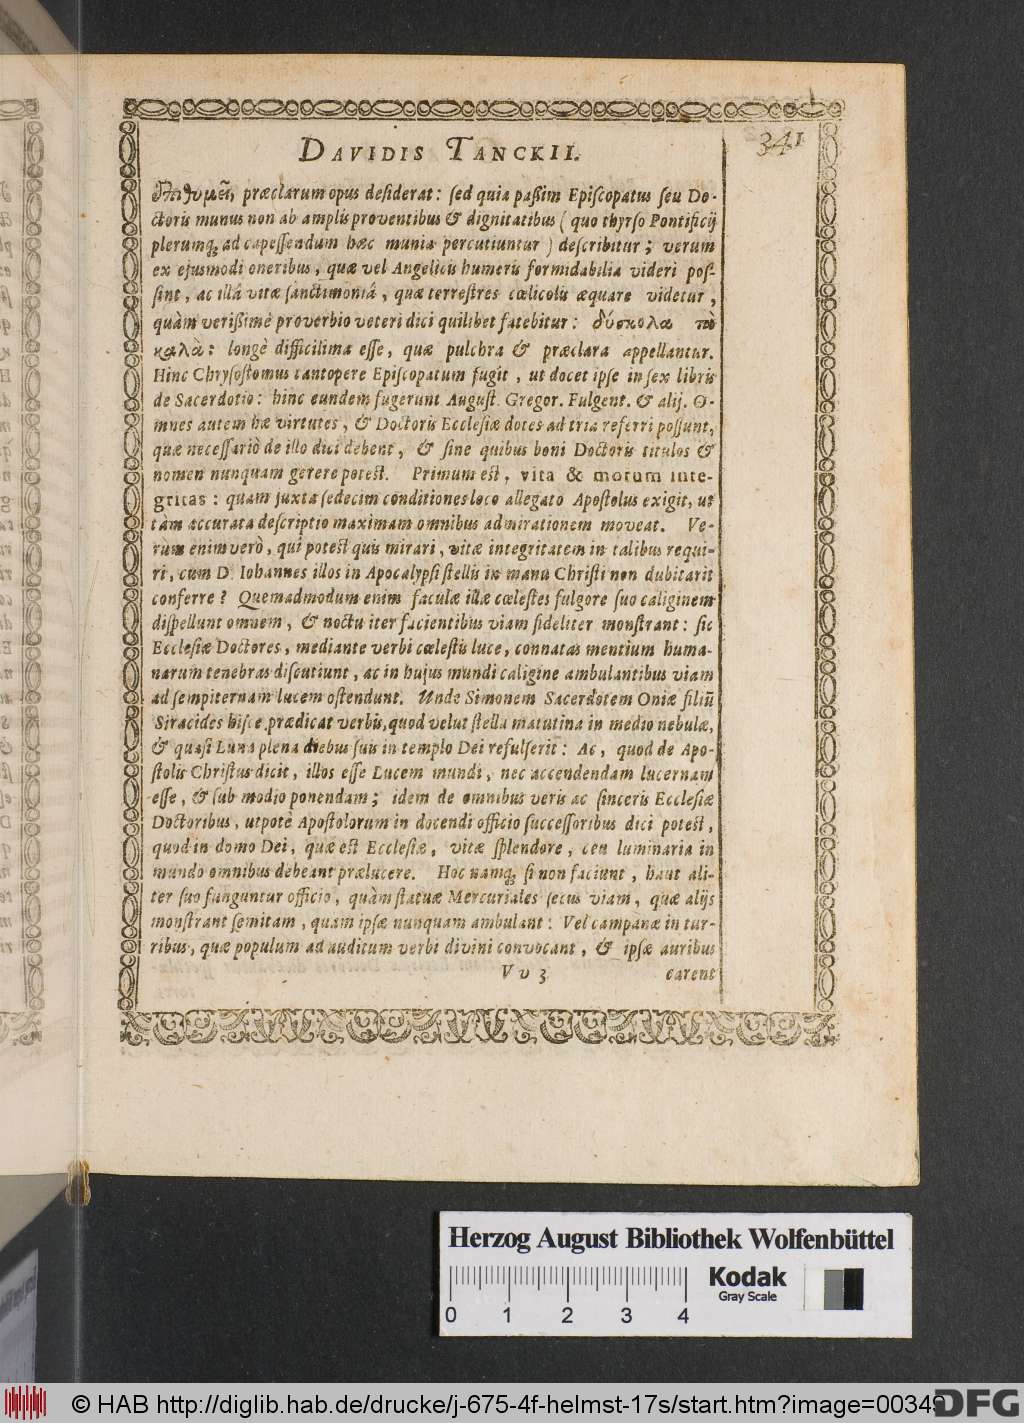 DAVIDIS TANCKII.
341
ἐπιθυμεῖ, præclarum opus desiderat: sed quia paßim Episcopatus seu Do-
ctoris munus non ab amplis proventibus & dignitatibus ( quo thyrso Pontificij
plerumq; ad capessendum hæc munia percutiuntur ) describitur; verum
ex ejusmodi oneribus, quæ vel Angelicis humeris formidabilia videri pos-
sint, ac illâ vitæ sanctimoniâ, quæ terrestres cœlicolis æquare videtur,
quàm verißimè proverbio veteri dici quilibet fatebitur: δύσκολα τὰ
καλὰ: longè difficilima esse, quæ pulchra & præclara appellantur.
Hinc Chrysostomus tantopere Episcopatum fugit, ut docet ipse in sex libris
de Sacerdotio: hinc eundem fugerunt August. Gregor. Fulgent. & alij. O-
mnes autem hæ virtutes, & Doctoris Ecclesiæ dotes ad tria referri possunt,
quæ necessariò de illo dici debent, & sine quibus boni Doctoris titulos &
nomen nunquam gerere potest. Primum est, vita & morum inte-
gritas: quam juxta sedecim conditiones loco allegato Apostolus exigit, ut
tàm accurata descriptio maximam omnibus admirationem moveat. Ve-
rum enim verò, qui potest quis mirari, vitæ integritatem in talibus requi-
ri, cum D. Iohannes illos in Apocalypsi stellis in manu Christi non dubitarit
conferre? Quemadmodum enim faculæ illæ cœlestes fulgore suo caliginem
dispellunt omnem, & noctu iter facientibus viam fideliter monstrant: sic
Ecclesiæ Doctores, mediante verbi cœlestis luce, connatas mentium huma-
narum tenebras discutiunt, ac in hujus mundi caligine ambulantibus viam
ad sempiternam lucem ostendunt. Unde Simonem Sacerdotem Oniæ filiū
Siracides hisce prædicat verbis, quod velut stella matutina in medio nebulæ,
& quasi Luna plena diebus suis in templo Dei refulserit: Ac, quod de Apo-
stolis Christus dicit, illos esse Lucem mundi, nec accendendam lucernam
esse, & sub modio ponendam; idem de omnibus veris ac sinceris Ecclesiæ
Doctoribus, utpotè Apostolorum in docendi officio successoribus dici potest,
quod in domo Dei, quæ est Ecclesiæ, vitæ splendore, ceu luminaria in
mundo omnibus debeant prælucere. Hoc namq; si non faciunt, haut ali-
ter suo funguntur officio, quàm statuæ Mercuriales secus viam, quæ alijs
monstrant semitam, quam ipsæ nunquam ambulant: Vel campanæ in tur-
ribus, quæ populum ad auditum verbi divini convocant, & ipsæ auribus
V v 3 carent
Herzog August Bibliothek Wolfenbüttel
Kodak
Gray Scale
0 1 2 3 4
© HAB http://diglib.hab.de/drucke/j-675-4f-helmst-17s/start.htm?image=00349
DFG